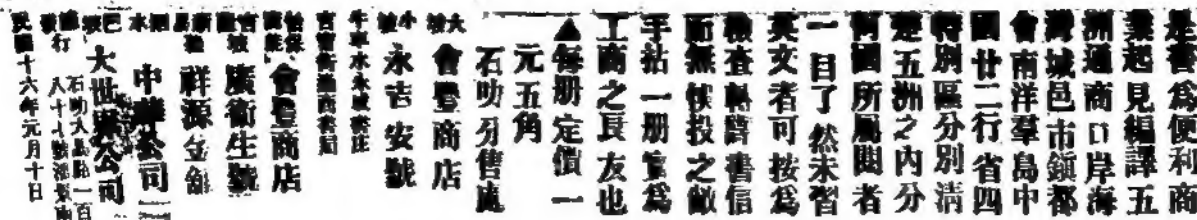 是書爲便利商
業起見編譯五
洲通商口岸海
灣城邑市鎮都
會南洋羣島中
國廿二行省四
特別區分別清
楚五洲之內分
何國所屬閱者
一目了然未習
英文者可按爲
檢查轉譯書信
而無悞投之敝
手拈一册實爲
工商之良友也
▲每册定價一
元五角
石叻分售處
大坡 會豐商店
小坡 永吉安號
牛車水永成書莊
吉甯街 西書局
怡保 會豐商店
吉坡 廣衛生號
新 祥源金舖
中華公司
大世界公司
石叻大馬路一百
八十八號
民國十六年元月十日